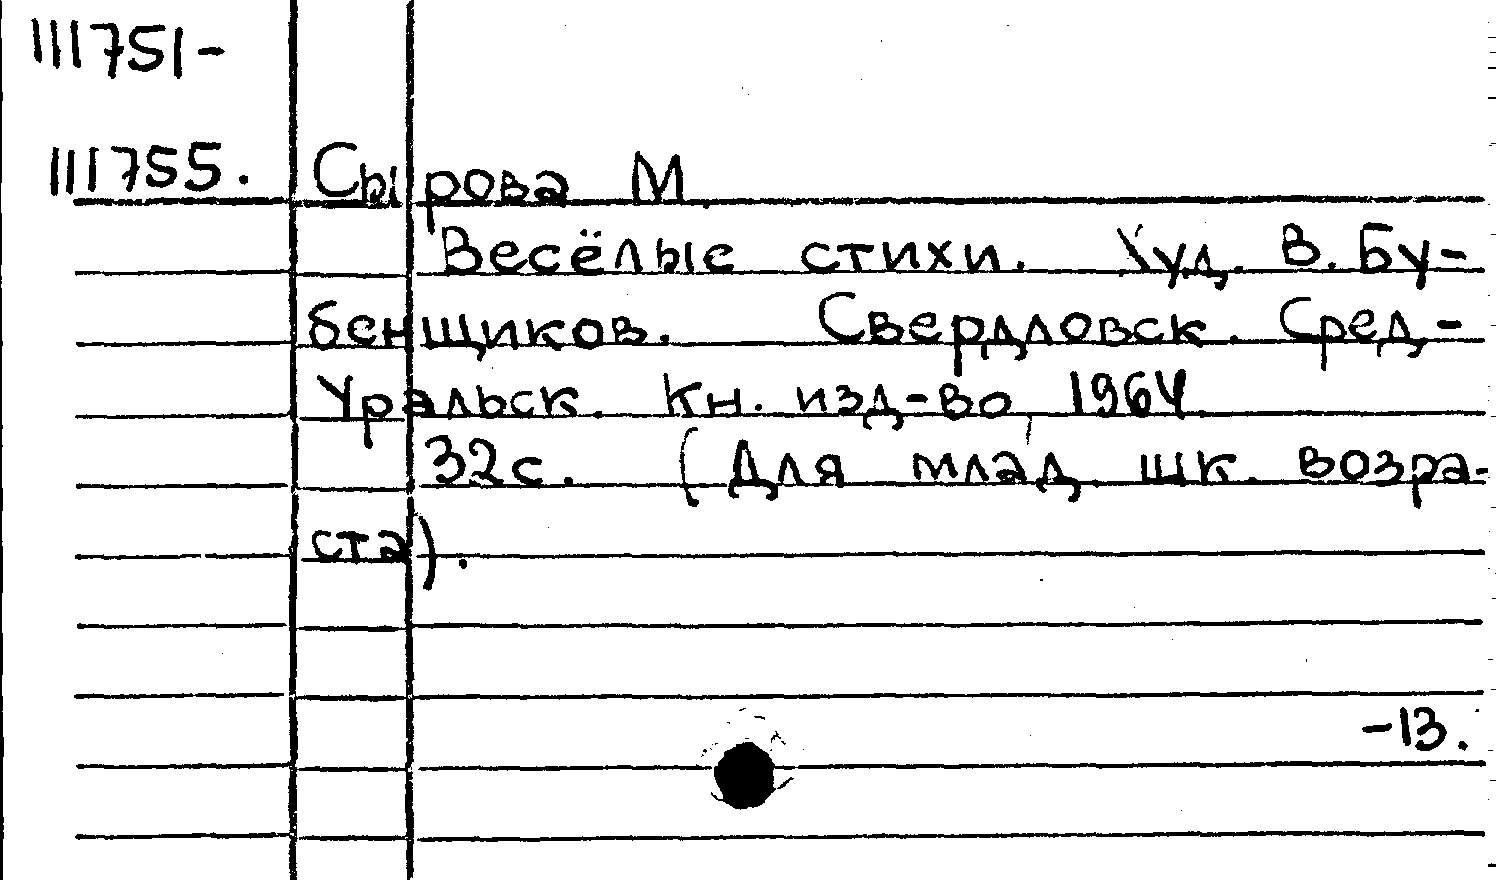 111751-
111755. Сырова М.
Весёлые стихи. Худ. В. Бу-
бенщиков. Свердловск. Сред-
Уральск. Кн. изд-во, 1964.
32с. (Для млад. шк. возра-
ста).
-13.